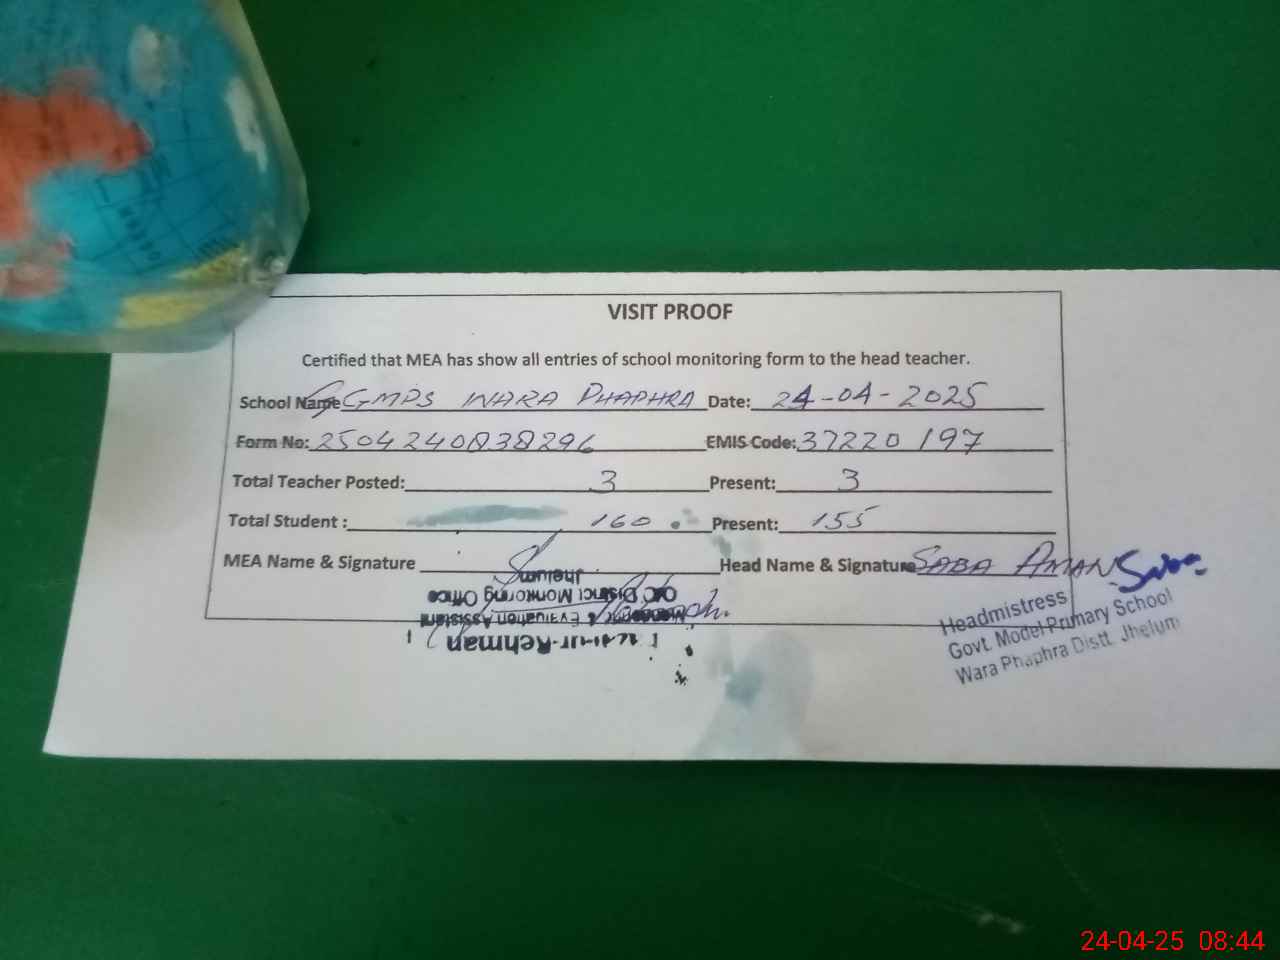 VISIT PROOF
Certified that MEA has show all entries of school monitoring form to the head teacher.
School Name GGMPS WARA PHAPHRA Date: 24-04-2025
Form No: 2504240838296 EMIS Code: 37220197
Total Teacher Posted: 3 Present: 3
Total Student : 160 Present: 155
MEA Name & Signature Head Name & Signature SABA AMAN Saba
Headmistress
Govt. Model Primary School
Wara Phaphra Distt. Jhelum
-Rehman
& Evaluation Assistant
O/O District Monitoring Office
Jhelum
24-04-25 08:44